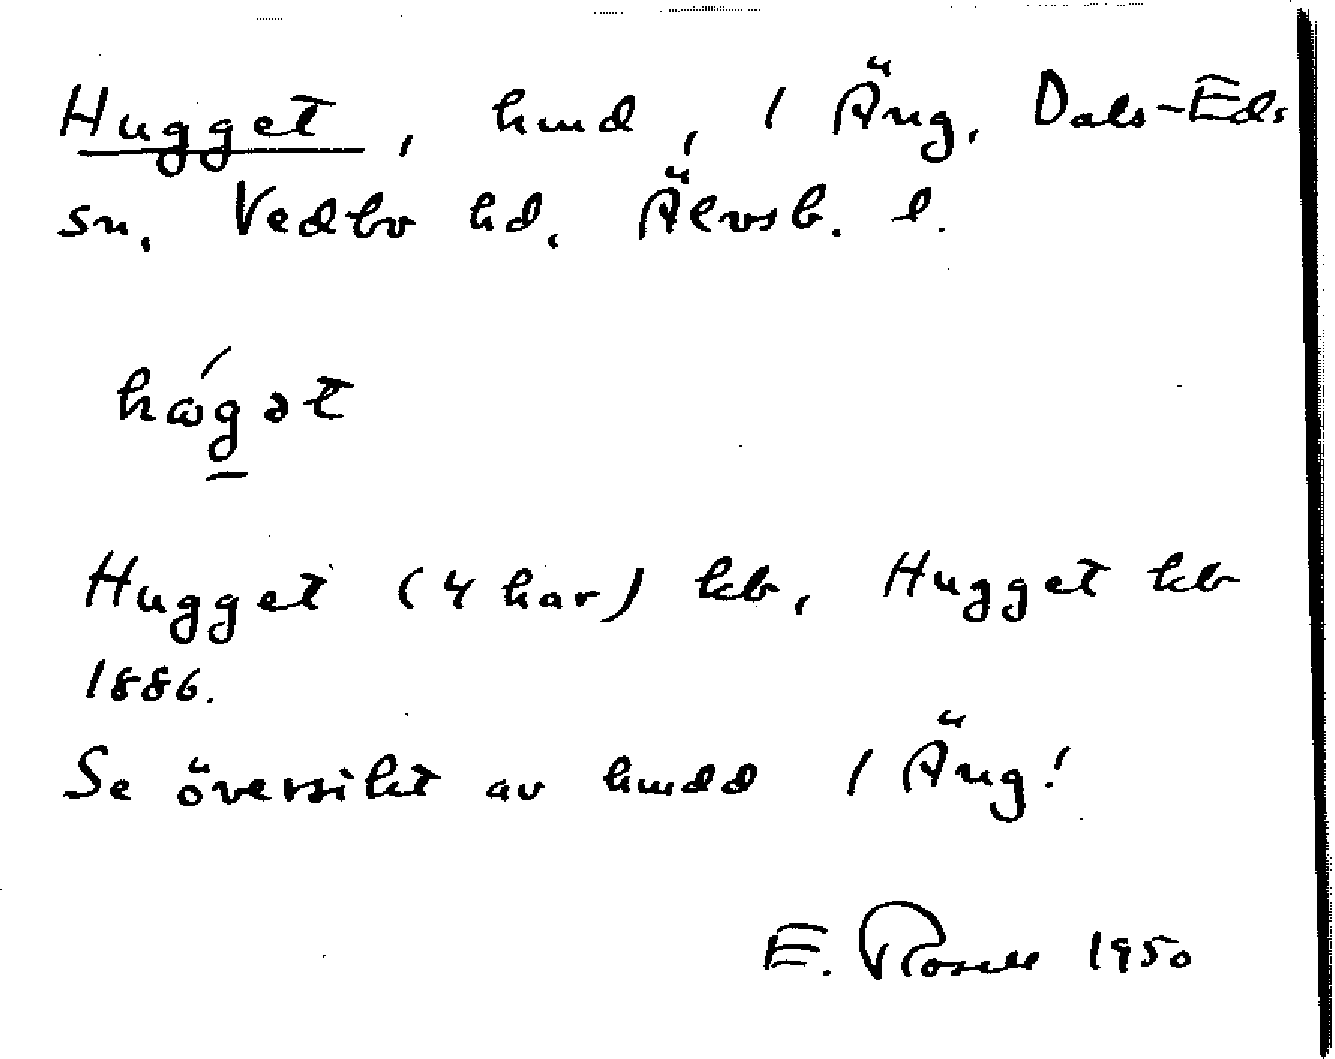 Hugget, hmd, 1 Äng, Dals-Eds
sn, Vedbo hd, Älvsb. l.
hógət
Hugget (4 har) kb, Hugget kb
1886.
Se översikt av hmdd 1 Äng!
E. Rosell 1950